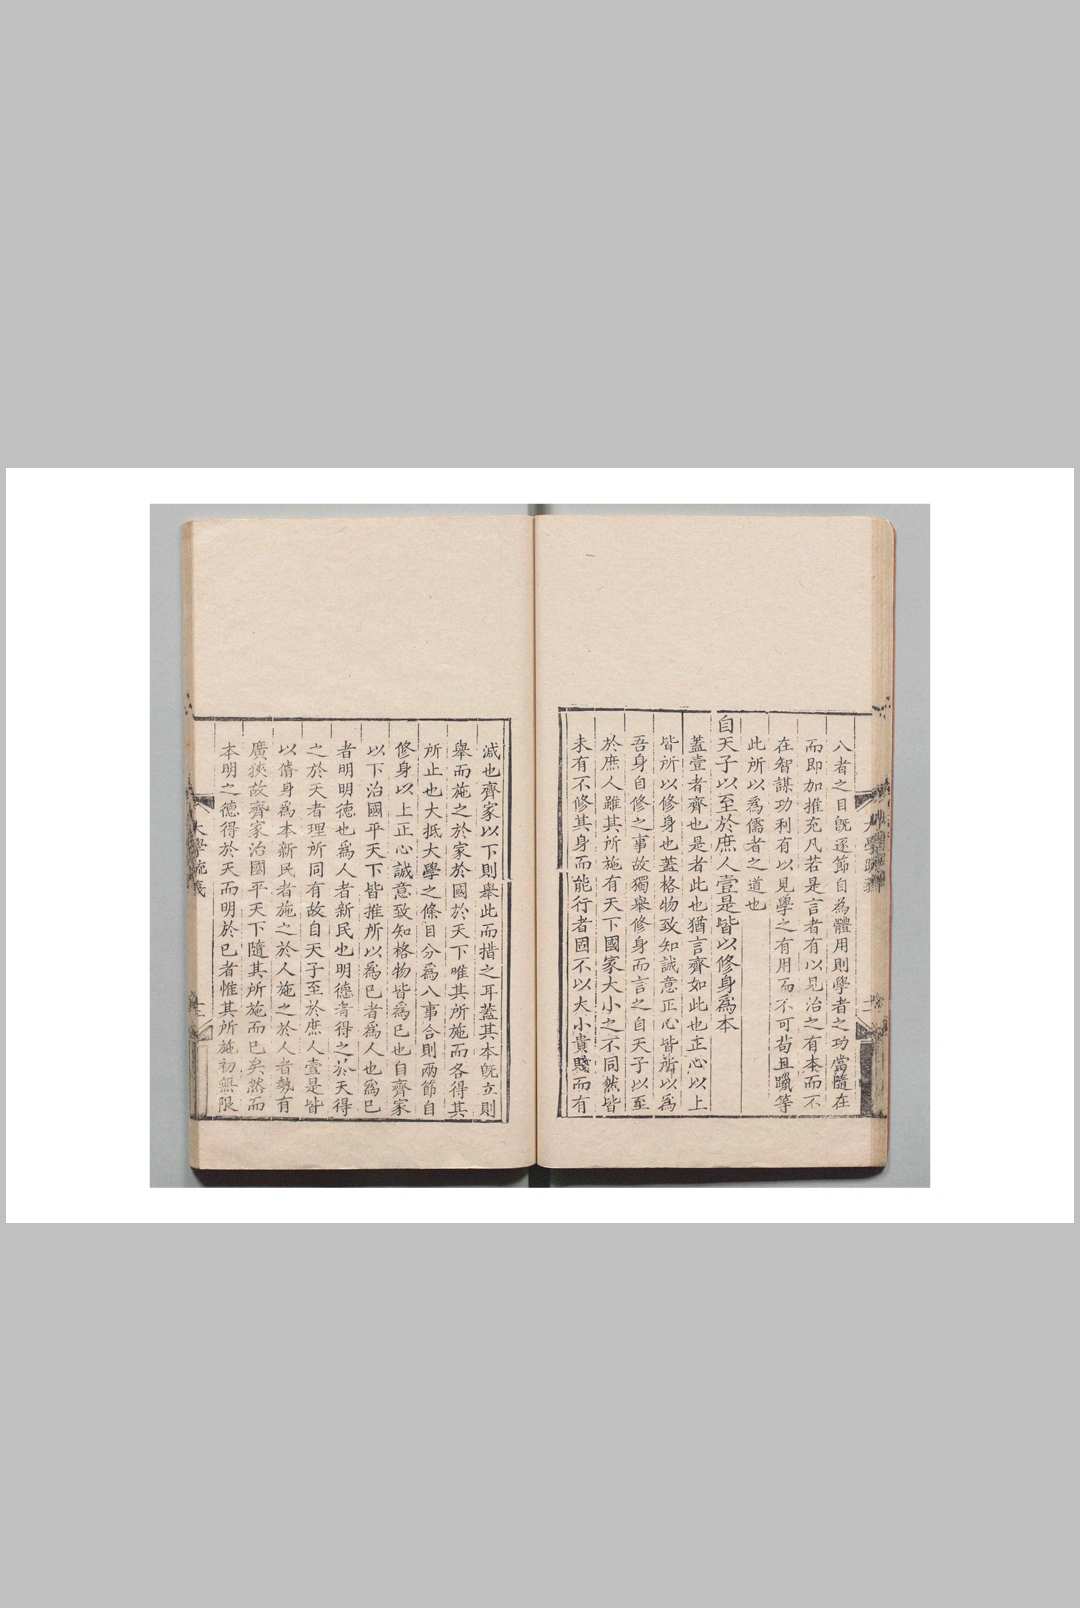 八者之目旣逐節自為體用則學者之功當隨在
而即加推充凡若是言者有以見治之有本而不
在智謀功利有以見學之有用而不可苟且躐等
此所以爲儒者之道也
自天子以至於庶人壹是皆以修身爲本
蓋壹者齊也是者此也猶言齊如此也正心以上
皆所以修身也蓋格物致知誠意正心皆所以爲
吾身自修之事故獨舉修身而言之自天子以至
於庶人雖其所施有天下國家大小之不同然皆
未有不修其身而能行者固不以大小貴賤而有
減也齊家以下則舉此而措之耳蓋其本旣立則
舉而施之於家於國於天下唯其所施而各得其
所止也大抵大學之條目分爲八事合則兩節自
修身以上正心誠意致知格物皆爲已也自齊家
以下治國平天下皆推所以爲已者爲人也爲已
者明明德也爲人者新民也明德者得之於天得
之於天者理所同有故自天子至於庶人壹是皆
以脩身爲本新民者施之於人施之於人者勢有
廣狹故齊家治國平天下隨其所施而已矣然而
本明之德得於天而明於已者惟其所施初無限
大學疏義